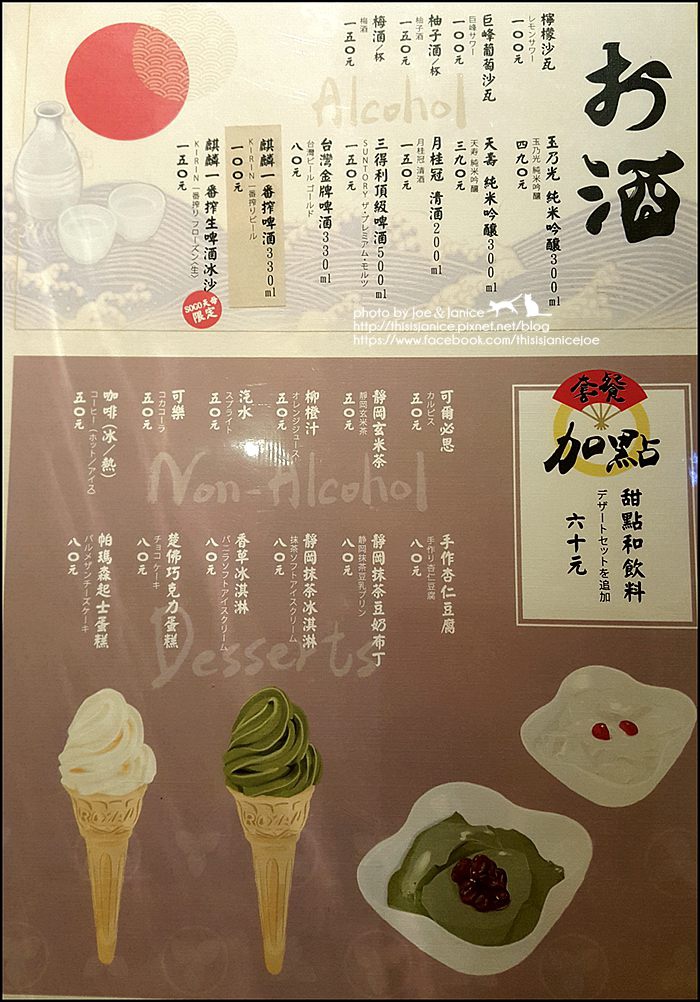 お酒
Alcohol
檸檬沙瓦
レモンサワー
一〇〇元
巨峰葡萄沙瓦
巨峰サワー
一〇〇元
柚子酒/杯
柚子酒
一五〇元
梅酒/杯
梅酒
一五〇元
玉乃光 純米吟釀300ml
玉乃光 純米吟醸
四九〇元
天壽 純米吟釀300ml
天寿 純米吟醸
三九〇元
月桂冠 清酒200ml
月桂冠 清酒
一五〇元
三得利頂級啤酒500ml
SUNTORY ザ・プレミアム・モルツ
一五〇元
台灣金牌啤酒330ml
台灣ビール ゴールド
八〇元
麒麟一番搾啤酒330ml
KIRIN 一番搾りビール
一〇〇元
麒麟一番搾生啤酒冰沙
KIRIN 一番搾りフローズン〈生〉
一五〇元
SOGO天母
限定
photo by Joe & Janice
http://thisisjanice.pixnet.net/blog
https://www.facebook.com/thisisjanicejoe
套餐
加點
甜點和飲料
デザートセットを追加
六十元
Non-Alcohol
可爾必思
カルピス
五〇元
靜岡玄米茶
靜岡玄米茶
五〇元
柳橙汁
オレンジジュース
五〇元
汽水
スプライト
五〇元
可樂
コカコーラ
五〇元
咖啡(冰/熱)
コーヒー(ホット/アイス)
五〇元
Desserts
手作杏仁豆腐
手作り杏仁豆腐
八〇元
靜岡抹茶豆奶布丁
靜岡抹茶豆乳プリン
八〇元
靜岡抹茶冰淇淋
抹茶ソフトアイスクリーム
八〇元
香草冰淇淋
バニラソフトアイスクリーム
八〇元
楚佛巧克力蛋糕
チョコケーキ
八〇元
帕瑪森起士蛋糕
パルメザンチーズケーキ
八〇元
ROYAL
ROYAL